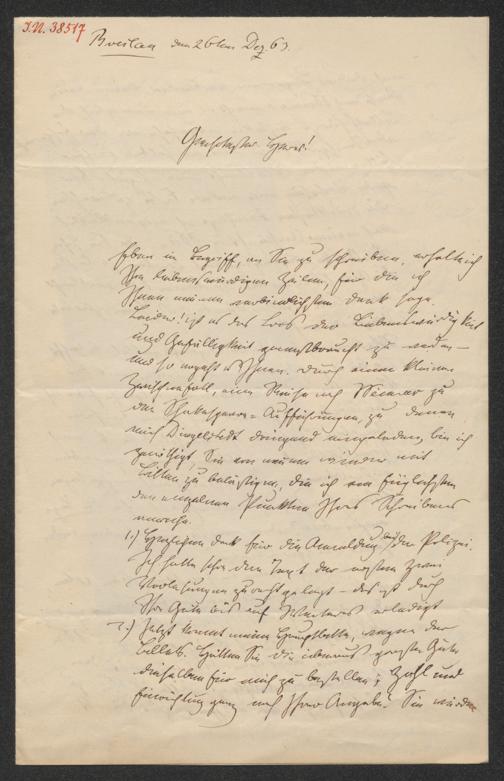 I.N. 38517
Breslau den 26ten Dez. 63.
Geehrtester Herr!
Eben im Begriff, an Sie zu schreiben, erhalte ich
Ihre liebenswürdigen Zeilen, für die ich
Ihnen meinen verbindlichsten Dank sage.
Leider! ist es das Loos der Liebenswürdigkeit
und Gefälligkeit gemißbraucht zu werden –
und so ergeht es Ihnen. Durch einen kleinen
Zwischenfall, eine Reise nach Weimar zu
den Shakespeare-Aufführungen, zu denen
mich Dingelstedt dringend eingeladen, bin ich
genöthigt, Sie von neuem wieder mit
Bitten zu belästigen, die ich am füglichsten
den einzelnen Punkten Ihres Schreibens
anreihe.
1.) Herzlichen Dank für die Anmeldung bei der Polizei.
Ich hatte schon den Text der ersten zwei
Vorlesungen zurecht gelegt – das ist durch
Ihre Güte bis auf Weiteres erledigt
2.) Jetzt kommt meine Hauptbitte, wegen der
Billets. Hätten Sie die überaus große Güte
dieselben für mich zu bestellen; Zahl und
Einrichtung ganz nach Ihrer Angabe. Sie würden